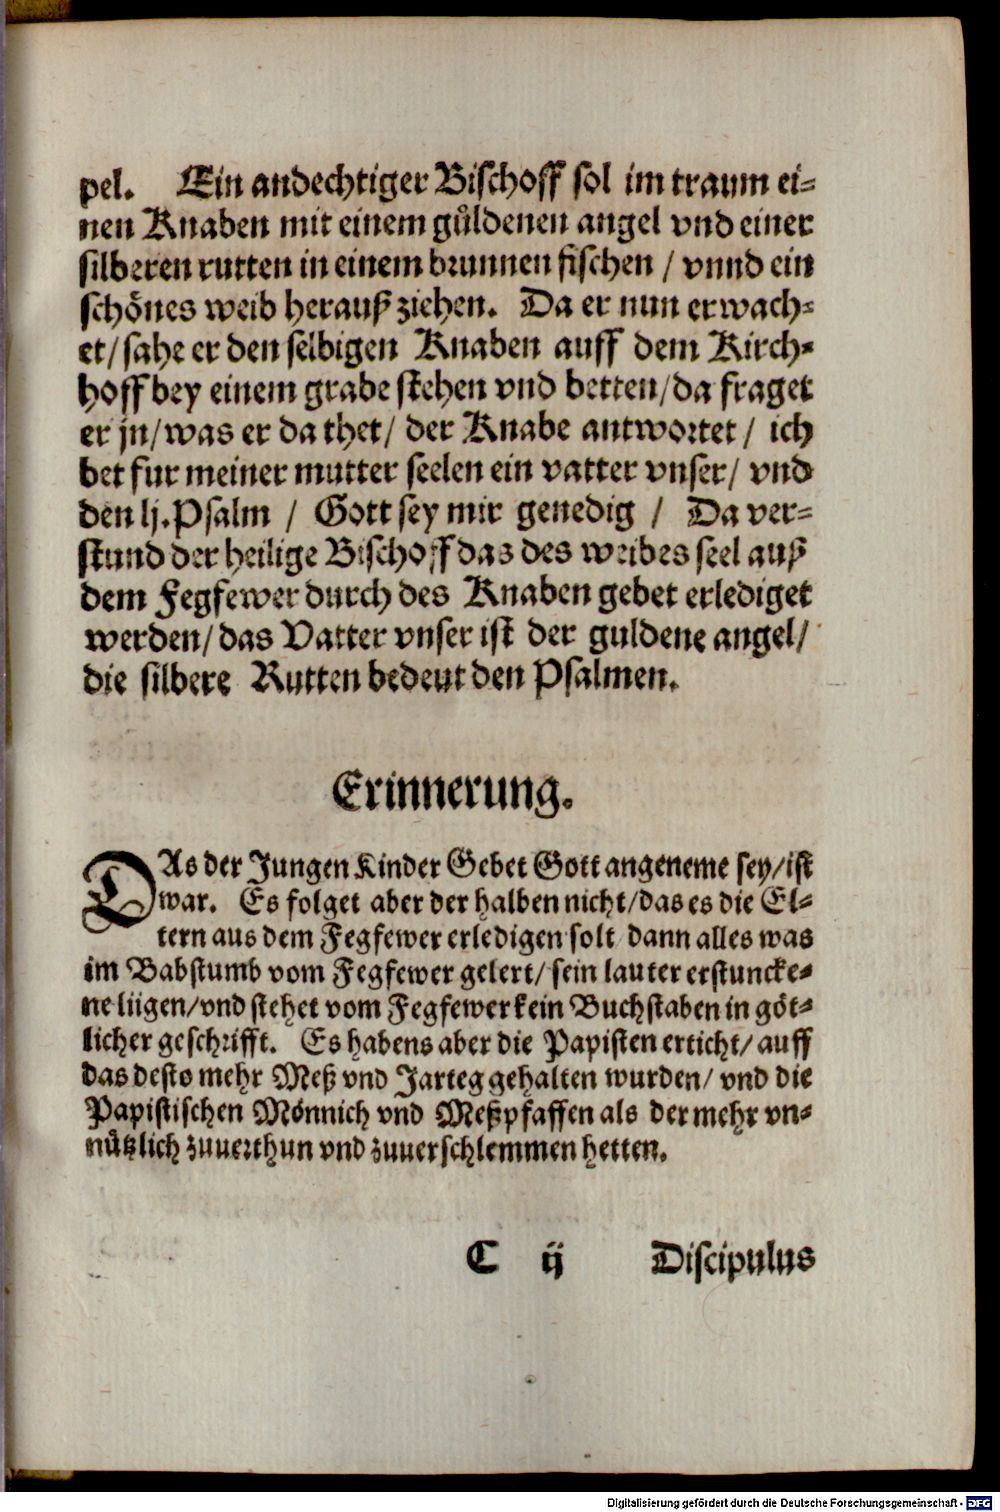 pel. Ein andechtiger Bischoff sol im traum ei=
nen Knaben mit einem gůldenen angel vnd einer
silberen rutten in einem brunnen fischen / vnnd ein
schönes weib herauß ziehen. Da er nun erwach=
et/ sahe er den selbigen Knaben auff dem Kirch=
hoff bey einem grabe stehen vnd betten/ da fraget
er jn/ was er da thet/ der Knabe antwortet / ich
bet fur meiner mutter seelen ein vatter vnser/ vnd
den lj. Psalm / Gott sey mir genedig / Da ver=
stund der heilige Bischoff das des weibes seel auß
dem Fegfewer durch des Knaben gebet erlediget
werden/ das Vatter vnser ist der guldene angel/
die silbere Rutten bedeut den Psalmen.
Erinnerung.
DAs der Jungen Kinder Gebet Gott angeneme sey/ ist
war. Es folget aber der halben nicht/ das es die El=
tern aus dem Fegfewer erledigen solt dann alles was
im Babstumb vom Fegfewer gelert/ sein lauter erstuncke=
ne liigen/ vnd stehet vom Fegfewer kein Buchstaben in göt=
licher geschrifft. Es habens aber die Papisten erticht/ auff
das desto mehr Meß vnd Jarteg gehalten wurden/ vnd die
Papistischen Mönnich vnd Meßpfaffen als der mehr vn=
nůtzlich zuuerthun vnd zuuerschlemmen hetten.
C ij Discipulus
Digitalisierung gefördert durch die Deutsche Forschungsgemeinschaft - DFG